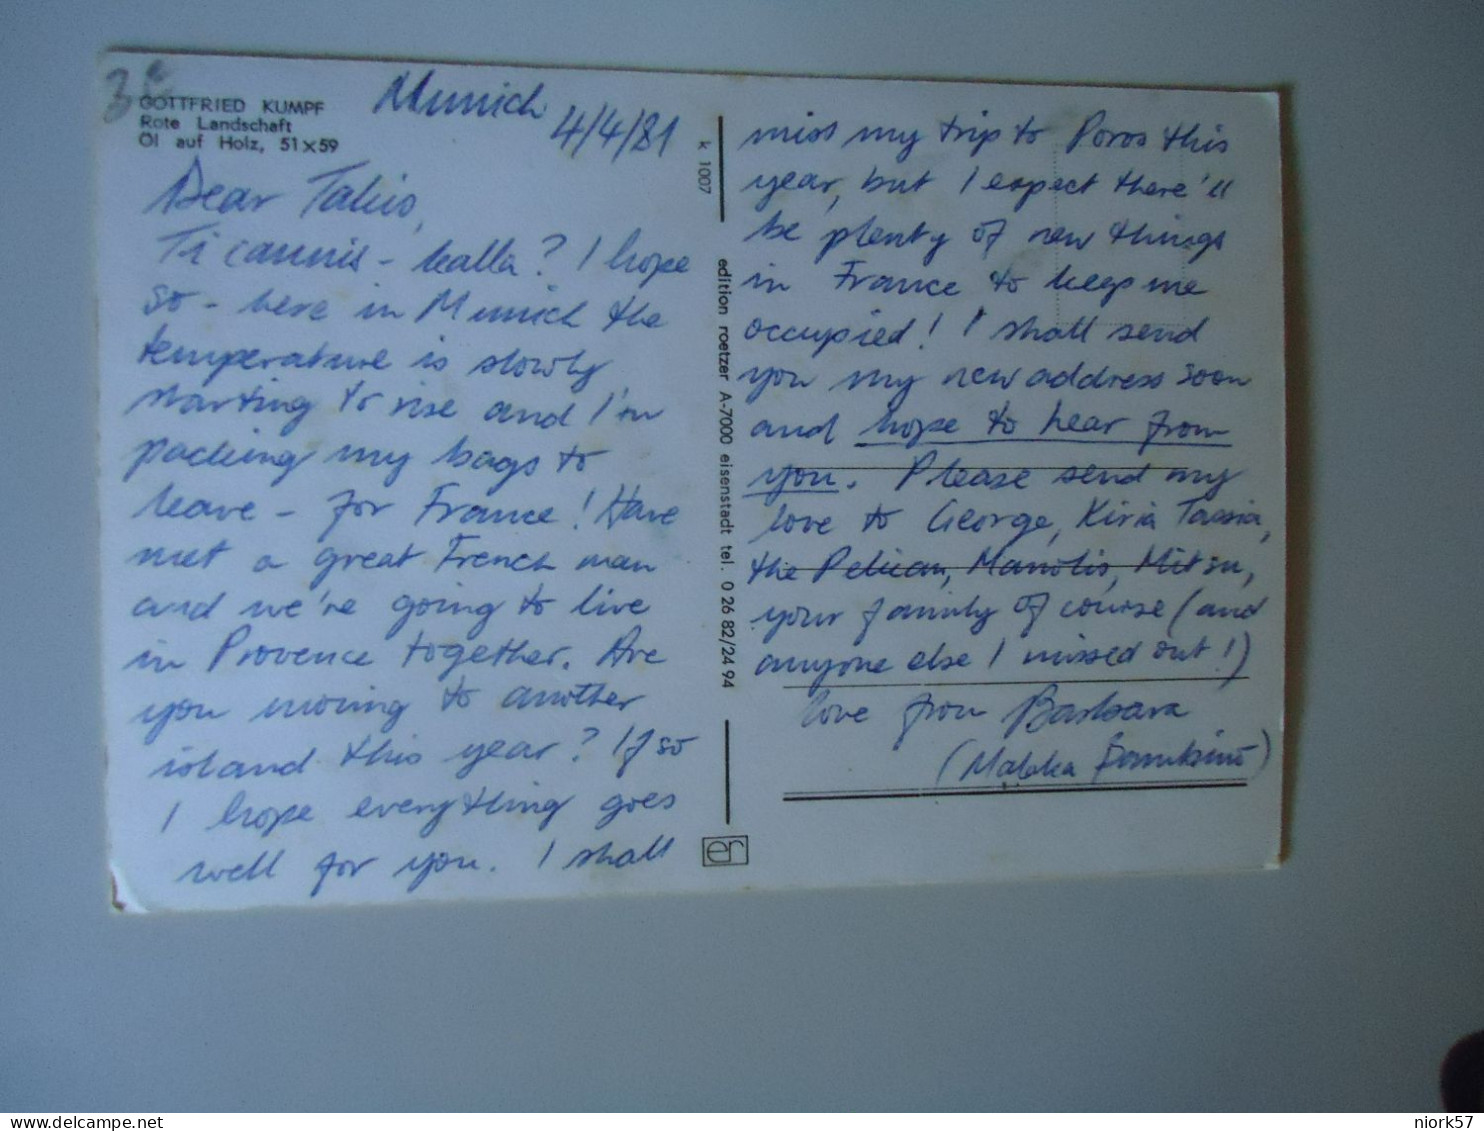 3€
GOTTFRIED KUMPF
Rote Landschaft
Öl auf Holz, 51x59
Munich
4/4/81
Dear Takis,
Ti cannis - kalla? I hope
so - here in Munich the
temperature is slowly
starting to rise and I'm
packing my bags to
leave - for France! Have
met a great French man
and we're going to live
in Provence together. Are
you moving to another
island this year? If so
I hope everything goes
well for you. I shall
k 1007
edition roetzer A-7000 eisenstadt tel. 0 26 82/24 94
er
miss my trip to Poros this
year, but I expect there'll
be plenty of new things
in France to keep me
occupied! I shall send
you my new address soon
and hope to hear from
you. Please send my
love to George, Kiria Tassia,
the Pelican, Manolis, Mitsu,
your family of course (and
anyone else I missed out!)
love from Barbara
(Malaka
niork57